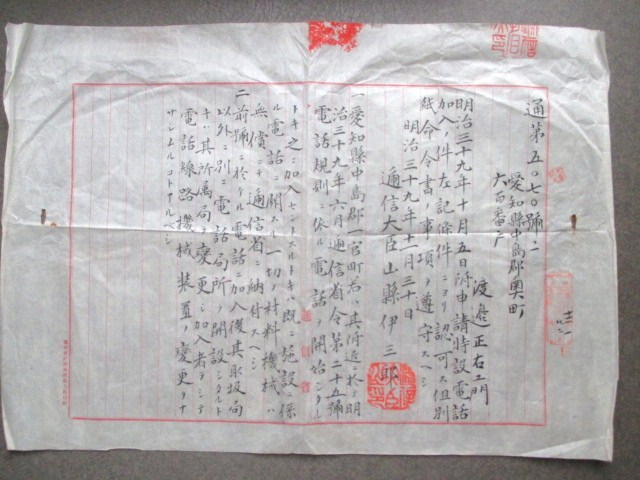 通第五〇七〇號ノ二
愛知縣中島郡奥町
六百番戸
渡邉正右エ門
明治三十九年十月五日附申請特設電話
加入ノ件左記條件ニヨリ認可ス但別
紙命令書事項ヲ遵守スヘシ
明治三十九年十一月三十日
逓信大臣山縣伊三郎
一愛知縣中島郡一宮町若ハ其附近ニ於テ明
治三十九年六月逓信省令第二十五號
電話規則ニ依ル電話ヲ開始シタル
トキ之ニ加入セントスルトキハ既ニ施設ニ係
ル電話ニ関スル一切ノ材料機械ハ
無償ニテ逓信省ニ納付スヘシ
二前號ニ於ケル電話ニ加入後其取扱局
以外ニ別ニ電話局所ヲ開設シタルト
キハ其所属局ヲ変更シ加入者ヲシテ
電話線路機械装置ヲ変更ヲナ
サシムルコトアルヘシ